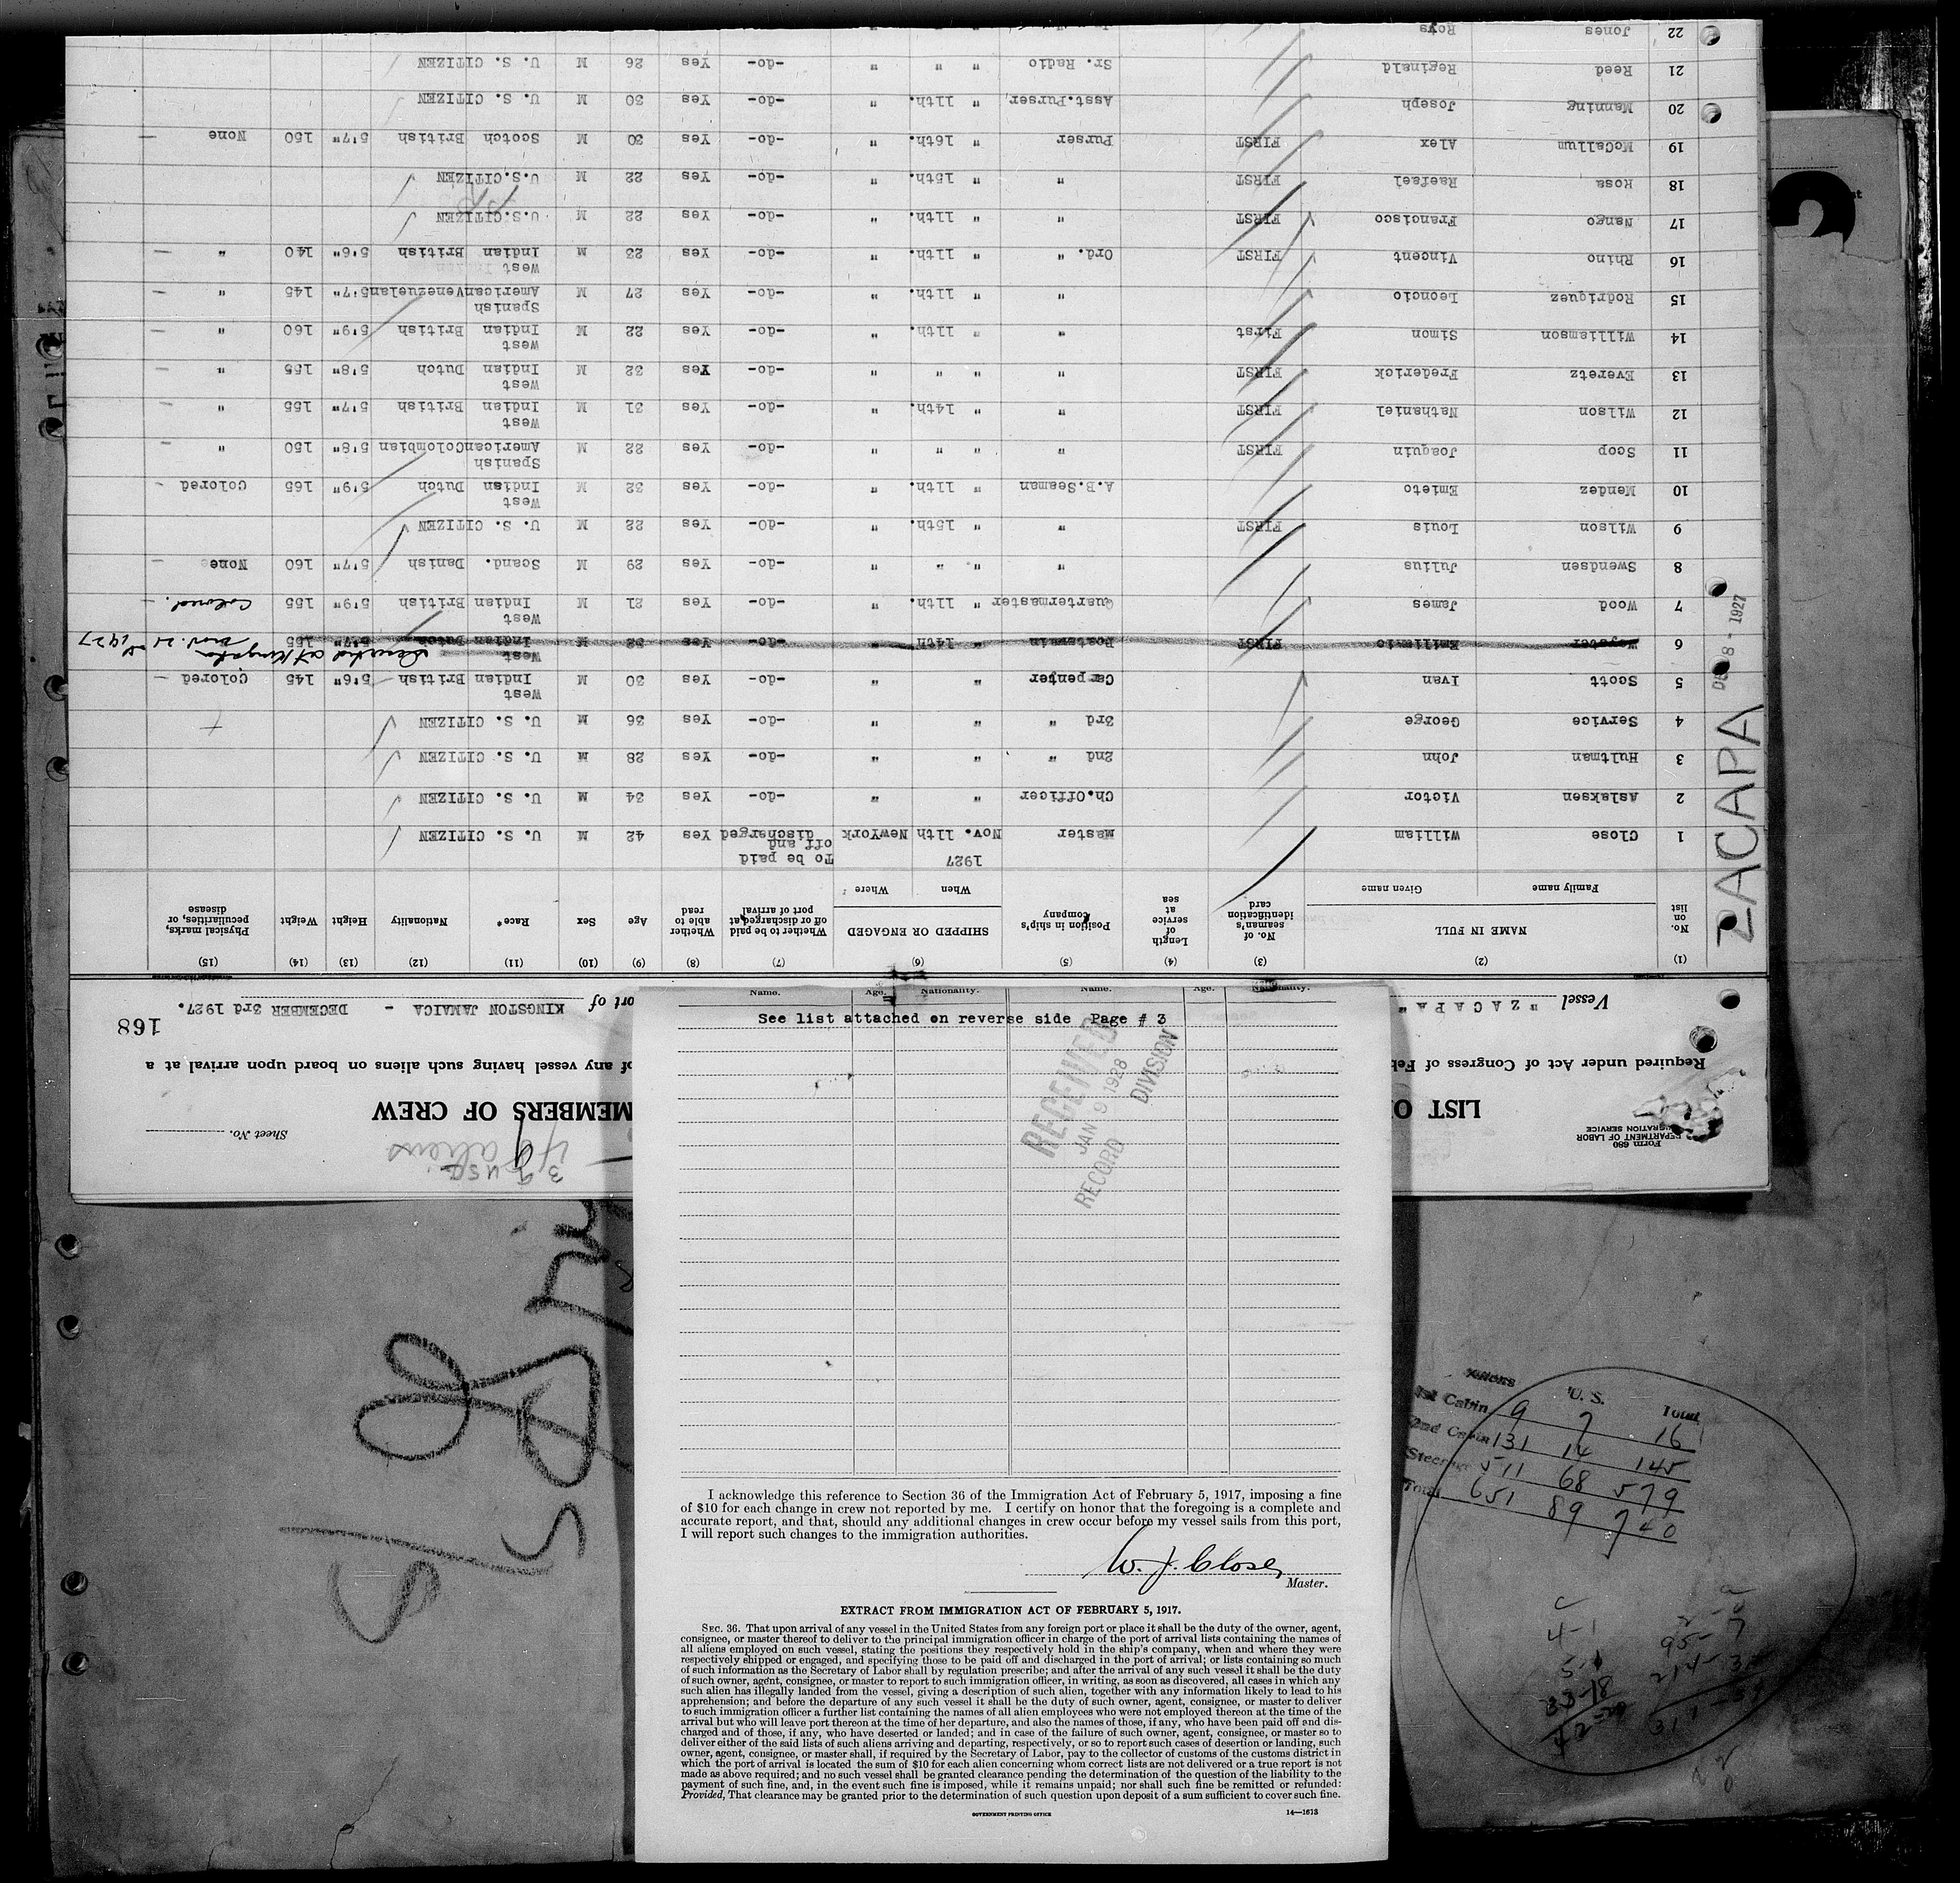 Form 680
DEPARTMENT OF LABOR
IMMIGRATION SERVICE
LIST O
MEMBERS OF CREW
38 usa
49 aliens
Sheet No.
Required under Act of Congress of Feb
of any vessel having such aliens on board upon arrival at a
168
Vessel "ZACAPA"
ort of KINGSTON JAMAICA - DECEMBER 3rd 1927.
(1) (2) (3) (4) (5) (6) (7) (8) (9) (10) (11) (12) (13) (14) (15)
No. on list
NAME IN FULL
Family name
Given name
No. of seaman's identification card
Length of service at sea
Position in ship's company
SHIPPED OR ENGAGED
When
Where
Whether to be paid off or discharged at port of arrival
Whether able to read
Age
Sex
Race*
Nationality
Height
Weight
Physical marks, peculiarities, or disease
1927 To be paid off and
1 Close William Master Nov. 11th NewYork discharged Yes 42 M U. S. CITIZEN
2 Aslaksen Victor Ch.Officer " " -do- Yes 34 M U. S. CITIZEN
3 Hultman John 2nd " " " -do- Yes 28 M U. S. CITIZEN
4 Service George 3rd " " " -do- Yes 36 M U. S. CITIZEN
5 Scott Ivan Carpenter " " -do- Yes 30 M West Indian British 5'6" 145 Colored -
6 Emiliano FIRST " 14th " -do- Yes 32 M West Indian Dutch 5'7" 155
Deserted at Kingston Nov. 21st 1927
7 Wood James Quartermaster " 11th. " -do- Yes 21 M West Indian British 5'9" 155 Colored. -
8 Swendsen Julius " " " " -do- Yes 29 M Scand. Danish 5'7" 160 None
9 Wilson Louis FIRST " " 15th. " -do- Yes 22 M U. S. CITIZEN
10 Mendez Emieto A.B.Seaman " 11th. " -do- Yes 32 M West Indian Dutch 5'9" 165 Colored -
11 Scop Joaquin FIRST " " " " -do- Yes 22 M Spanish American Colombian 5'8" 150 " -
12 Wilson Nathaniel FIRST " " 14th. " -do- Yes 31 M West Indian British 5'7" 155 " -
13 Everetz Frederick FIRST " " " " -do- Yes 32 M West Indian Dutch 5'8" 155 " -
14 Williamson Simon First " " 11th. " -do- Yes 22 M West Indian British 5'9" 160 " -
15 Rodriquez Leoncio " " 11th. " -do- Yes 27 M Spanish American Venezuelan 5'7" 145 " -
16 Rhino Vincent FIRST Ord. " " 11th. " -do- Yes 23 M West Indian British 5'6" 140 " -
17 Nango Francisco FIRST " " 11th. " -do- Yes 22 M U.S.CITIZEN
18 Rosa Raefael FIRST " " 15th. " -do- Yes 22 M U.S.CITIZEN
19 McCallum Alex FIRST Purser " 16th. " -do- Yes 30 M Scotch British 5'7" 150 None -
20 Manning Joseph Asst.Purser, " 11th. " -do- Yes 30 M U. S. CITIZEN
21 Reed Reginald Sr. Radio " " " -do- Yes 26 M U. S. CITIZEN
22 Jones
ZACAPA
8 - 1927
Name. Age. Nationality. Name. Age. Nationality.
See list attached on reverse side Page # 3
RECEIVED
JAN 9 1928
RECORD DIVISION
I acknowledge this reference to Section 36 of the Immigration Act of February 5, 1917, imposing a fine
of $10 for each change in crew not reported by me. I certify on honor that the foregoing is a complete and
accurate report, and that, should any additional changes in crew occur before my vessel sails from this port,
I will report such changes to the immigration authorities.
W. J. Close,
Master.
EXTRACT FROM IMMIGRATION ACT OF FEBRUARY 5, 1917.
SEC. 36. That upon arrival of any vessel in the United States from any foreign port or place it shall be the duty of the owner, agent,
consignee, or master thereof to deliver to the principal immigration officer in charge of the port of arrival lists containing the names of
all aliens employed on such vessel, stating the positions they respectively hold in the ship's company, when and where they were
respectively shipped or engaged, and specifying those to be paid off and discharged in the port of arrival; or lists containing so much
of such information as the Secretary of Labor shall by regulation prescribe; and after the arrival of any such vessel it shall be the duty
of such owner, agent, consignee, or master to report to such immigration officer, in writing, as soon as discovered, all cases in which any
such alien has illegally landed from the vessel, giving a description of such alien, together with any information likely to lead to his
apprehension; and before the departure of any such vessel it shall be the duty of such owner, agent, consignee, or master to deliver
to such immigration officer a further list containing the names of all alien employees who were not employed thereon at the time of the
arrival but who will leave port thereon at the time of her departure, and also the names of those, if any, who have been paid off and dis-
charged and of those, if any, who have deserted or landed; and in case of the failure of such owner, agent, consignee, or master so to
deliver either of the said lists of such aliens arriving and departing, respectively, or so to report such cases of desertion or landing, such
owner, agent, consignee, or master shall, if required by the Secretary of Labor, pay to the collector of customs of the customs district in
which the port of arrival is located the sum of $10 for each alien concerning whom correct lists are not delivered or a true report is not
made as above required; and no such vessel shall be granted clearance pending the determination of the question of the liability to the
payment of such fine, and, in the event such fine is imposed, while it remains unpaid; nor shall such fine be remitted or refunded:
Provided, That clearance may be granted prior to the determination of such question upon deposit of a sum sufficient to cover such fine.
GOVERNMENT PRINTING OFFICE
14—1673
Aliens U. S. Total
1st Cabin 9 7 16
2nd Cabin 131 14 145
Steerage 511 68 579
Total 651 89 740